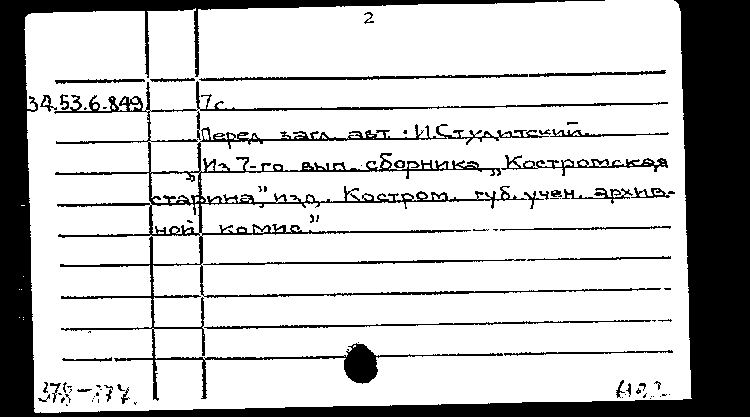 2
34.53.6.849 7с.
Перед загл. авт.: И.Студитский.
„Из 7-го вып. сборника „Костромская
старина", изд. Костром. губ. учен. архив-
ной комис."